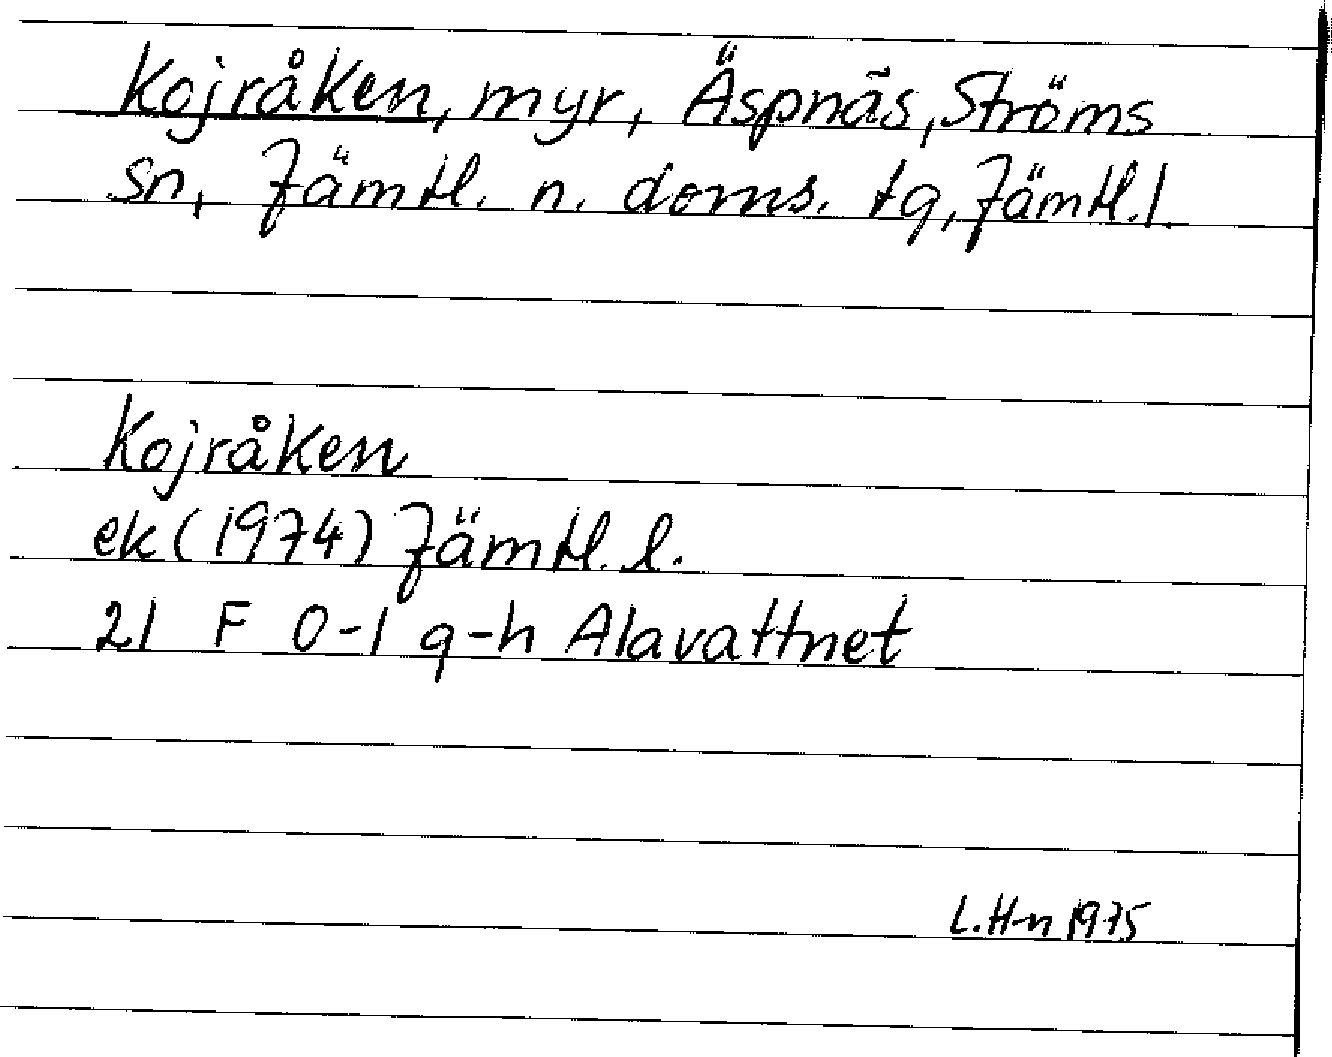 Kojråken, myr, Äspnäs, Ströms
sn, Jämtl. n. doms. tg, Jämtl. l.
Kojråken
ek (1974) Jämtl. l.
21 F 0-1 g-h Alavattnet
L. H-n 1975